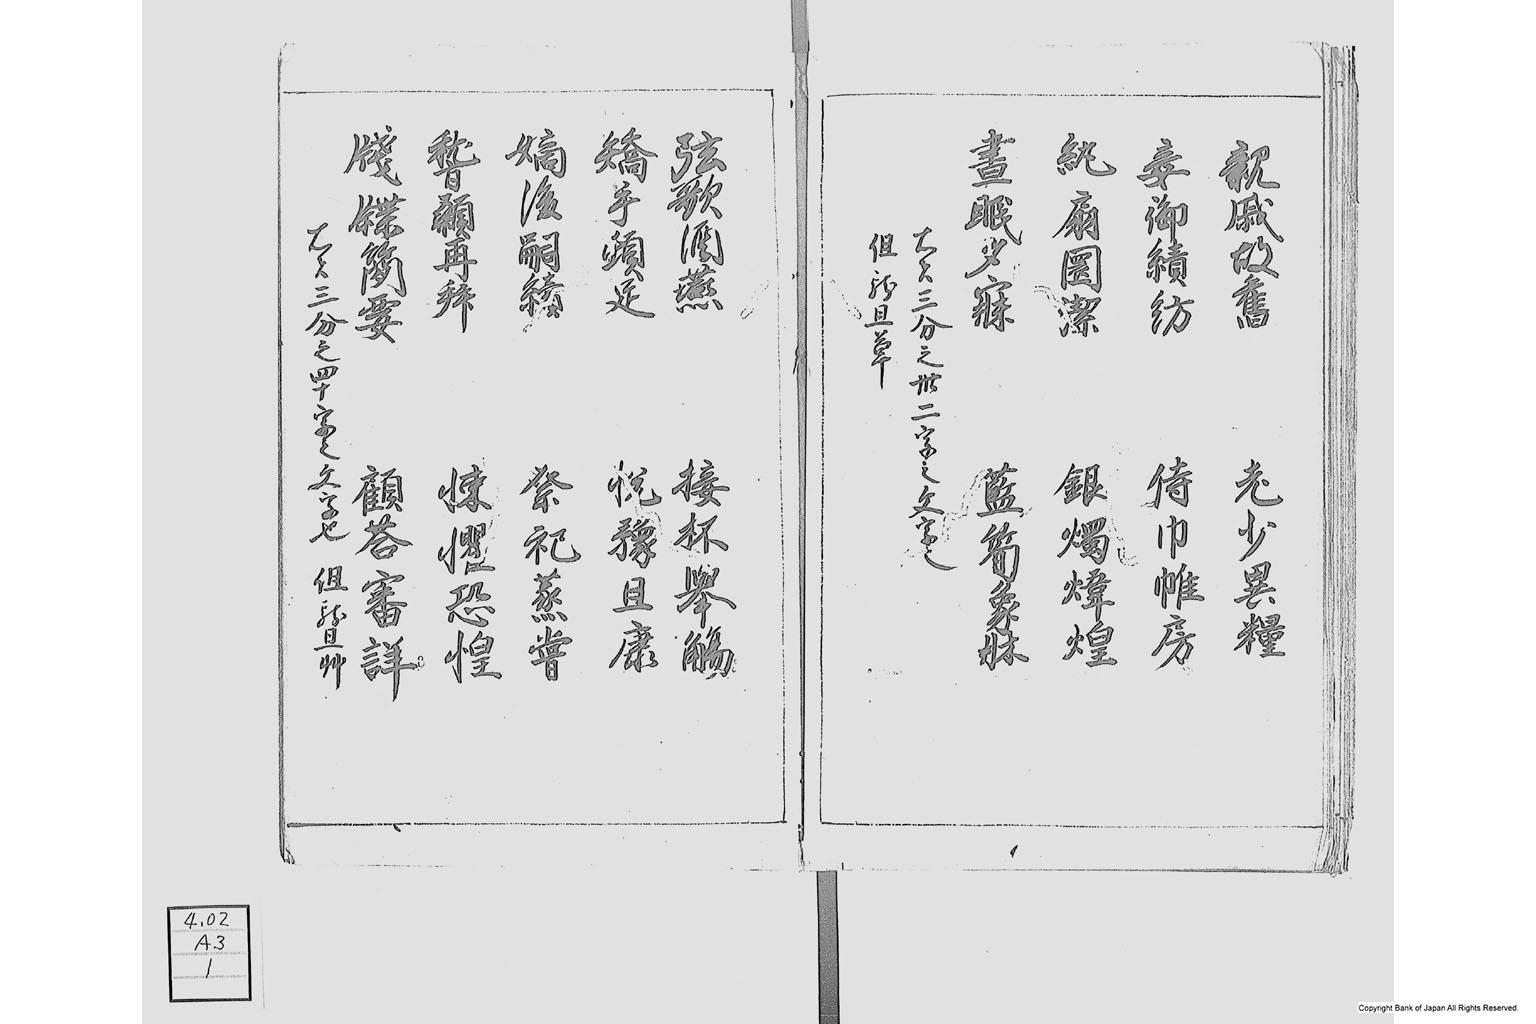 親戚故舊　老少異糧
妾御績紡　侍巾帷房
紈扇圓潔　銀燭煒煌
晝眠夕寐　藍筍象牀
大サ三分之卅二字之文字之
但 且草
弦歌酒讌　接杯舉觴
矯手頓足　悦豫且康
嫡後嗣續　祭祀蒸嘗
稽顙再拜　悚懼恐惶
牋牒簡要　顧答審詳
大サ三分之四十字之文字也　但 且艸
4.02
A3
1
Copyright Bank of Japan All Rights Reserved.